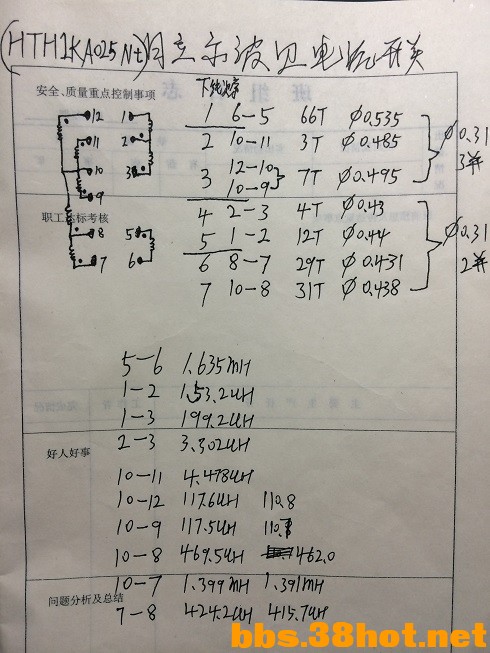 (HTH1KA025Nt)月立尔波贝电流开关
班组 志
安全、质量重点控制事项
下线序
12 1
11 2
10 3
9
8 5
7 6
1 6-5 66T Ø0.535
2 10-11 3T Ø0.485
3 12-10 10-9 7T Ø0.495
Ø0.31 3并
职工达标考核
4 2-3 4T Ø0.43
5 1-2 12T Ø0.44
6 8-7 29T Ø0.431
7 10-8 31T Ø0.438
Ø0.31 2并
5-6 1.635mH
1-2 1.53.2uH
1-3 199.2uH
2-3 3.302uH
好人好事
10-11 4.478uH
10-12 117.6uH 110.8
10-9 117.5uH 110.
10-8 469.5uH 462.0
10-7 1.399mH 1.391mH
问题分析及总结
7-8 424.2uH 415.7uH
bbs.38hot.net